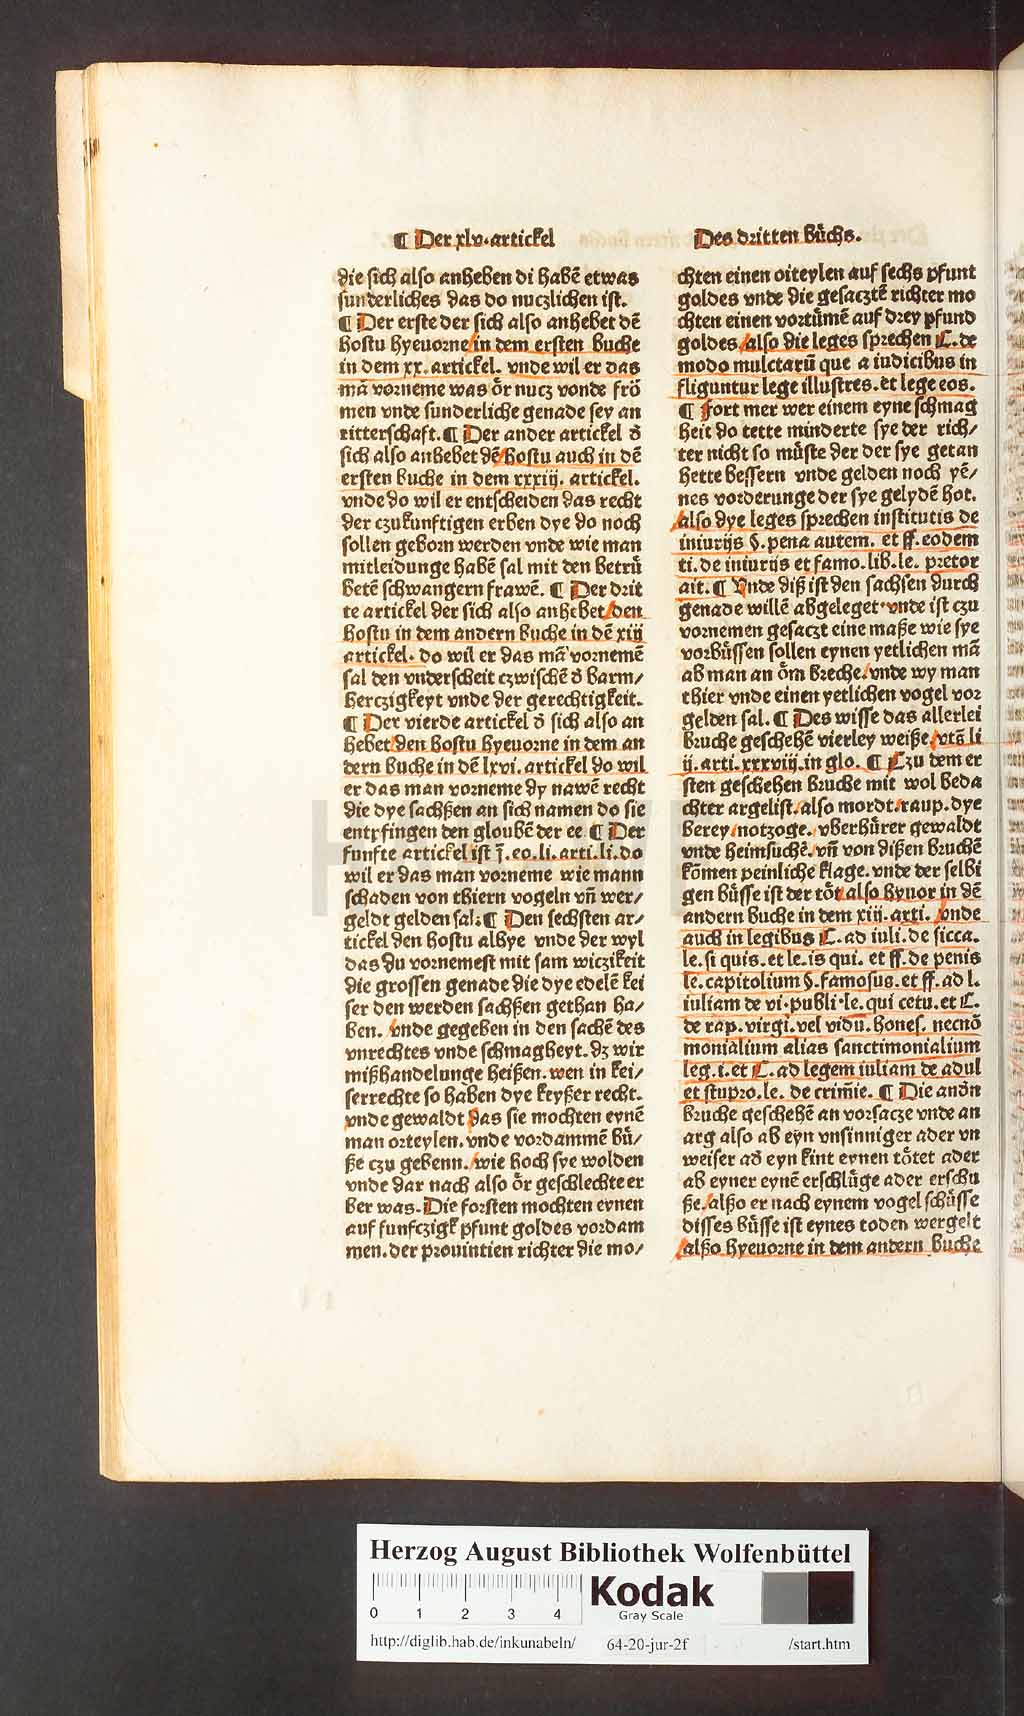 ¶ Der xlv. artickel
Des dritten bůchs.
die sich also anheben di habē etwas
sunderliches das do nuczlichen ist.
¶ Der erste der sich also anhebet dē
hostu hyeuorne/in dem ersten buche
in dem xx. artickel. vnde wil er das
mā vorneme was ȯr nucz vonde frȯ
men vnde sunderliche genade sey an
ritterschaft.¶ Der ander artickel ð
sich also anhebet dē/hostu auch in dē
ersten buche in dem xxxiij. artickel.
vnde do wil er entscheiden das recht
der czukunftigen erben dye do noch
sollen geborn werden vnde wie man
mitleidunge habē sal mit den betrů
betē schwangern frawē. ¶ Der drit
te artickel der sich also anhebet/den
hostu in dem andern buche in dē xiij
artickel. do wil er das mā vornemē
sal den vnderscheit czwischē ð barm/
herczigkeyt vnde der gerechtigkeit.
¶ Der vierde artickel ð sich also an
hebet/den hostu hyeuorne in dem an
dern buche in dē lxvi. artickel do wil
er das man vorneme dy nawē recht
die dye sachßen an sich namen do sie
entpfingen den gloubē der ee ¶ Der
funfte artickel ist j̄. eo.li.arti.li.do
wil er das man vorneme wie mann
schaden von thiern vogeln vn̄ wer/
geldt gelden sal:¶ Den sechsten ar/
tickel den hostu alhye vnde der wyl
das du vornemest mit sam wiczikeit
die grossen genade die dye edelē kei
ser den werden sachßen gethan ha/
ben. /vnde gegeben in den sachē des
vnrechtes vnde schmagheyt. dz wir
mißhandelunge heißen. wen in kei/
serrechte so haben dye keyßer recht.
vnde gewaldt das sie mochten eynē
man orteylen. vnde vordammē bů/
ße czu gebenn. /wie hoch sye wolden
vnde dar nach also ȯr geschlechte er
ber was. Die forsten mochten eynen
auf funfczigk pfunt goldes vordam
men. der prouintien richter die mo/
chten einen oiteylen auf sechs pfunt
goldes vnde die gesacztē richter mo
chten einen vortůmē auf drey pfund
goldes /also die leges sprechen C. de
modo mulctarū que a iudicibus in
fliguntur lege illustres. et lege eos.
¶ Fort mer wer einem eyne schmag
heit do tette minderte sye der rich/
ter nicht so můste der der sye getan
hette bessern vnde gelden noch yē/
nes vorderunge der sye gelydē hot.
/also dye leges sprechen institutis de
iniurijs §. pena autem. et ff. eodem
ti. de iniurijs et famo. lib. le. pretor
ait. ¶ Vnde diß ist den sachsen durch
genade willē abgeleget. vnde ist czu
vornemen gesaczt eine maße wie sye
vorbůssen sollen eynen yetlichen mā
ab man an ȯm breche. /vnde wy man
thier vnde einen yetlichen vogel vor
gelden sal. ¶ Des wisse das allerlei
bruche geschehē vierley weiße /vts̄ li
ij. arti. xxxviij. in glo. ¶ Czu dem er
sten geschehen bruche mit wol beda
chter argelist. /also mordt /raup. dye
berey /notzoge. /vberhůrer gewaldt
vnde heimsuchē. /vn̄ von dißen bruchē
kōmen peinliche klage. vnde der selbi
gen bůsse ist der tȯt /also hyuor in dē
andern buche in dem xiij. arti. /vnde
auch in legibus C. ad iuli. de sicca.
le. si quis. et le. is qui. et ff. de penis
le. capitolium §. famosus. et ff. ad l.
iuliam de vi. publi. le. qui cetu. et C.
de rap. virgi. vel vidu. hones. necnō
monialium alias sanctimonialium
leg. i. et C. ad legem iuliam de adul
et stupro. le. de crim̄ie. ¶ Die andn̄
bruche geschehē an vorsacze vnde an
arg also ab eyn vnsinniger ader vn
weiser að eyn kint eynen tȯtet ader
ab eyner eynē erschlůge ader erschu
ße. /alßo er nach eynem vogel schůsse
disses bůsse ist eynes toden wergelt
/alßo hyeuorne in dem andern buche
HAB WF
Herzog August Bibliothek Wolfenbüttel
0 1 2 3 4
Kodak
Gray Scale
http://diglib.hab.de/inkunabeln/ 64-20-jur-2f /start.htm